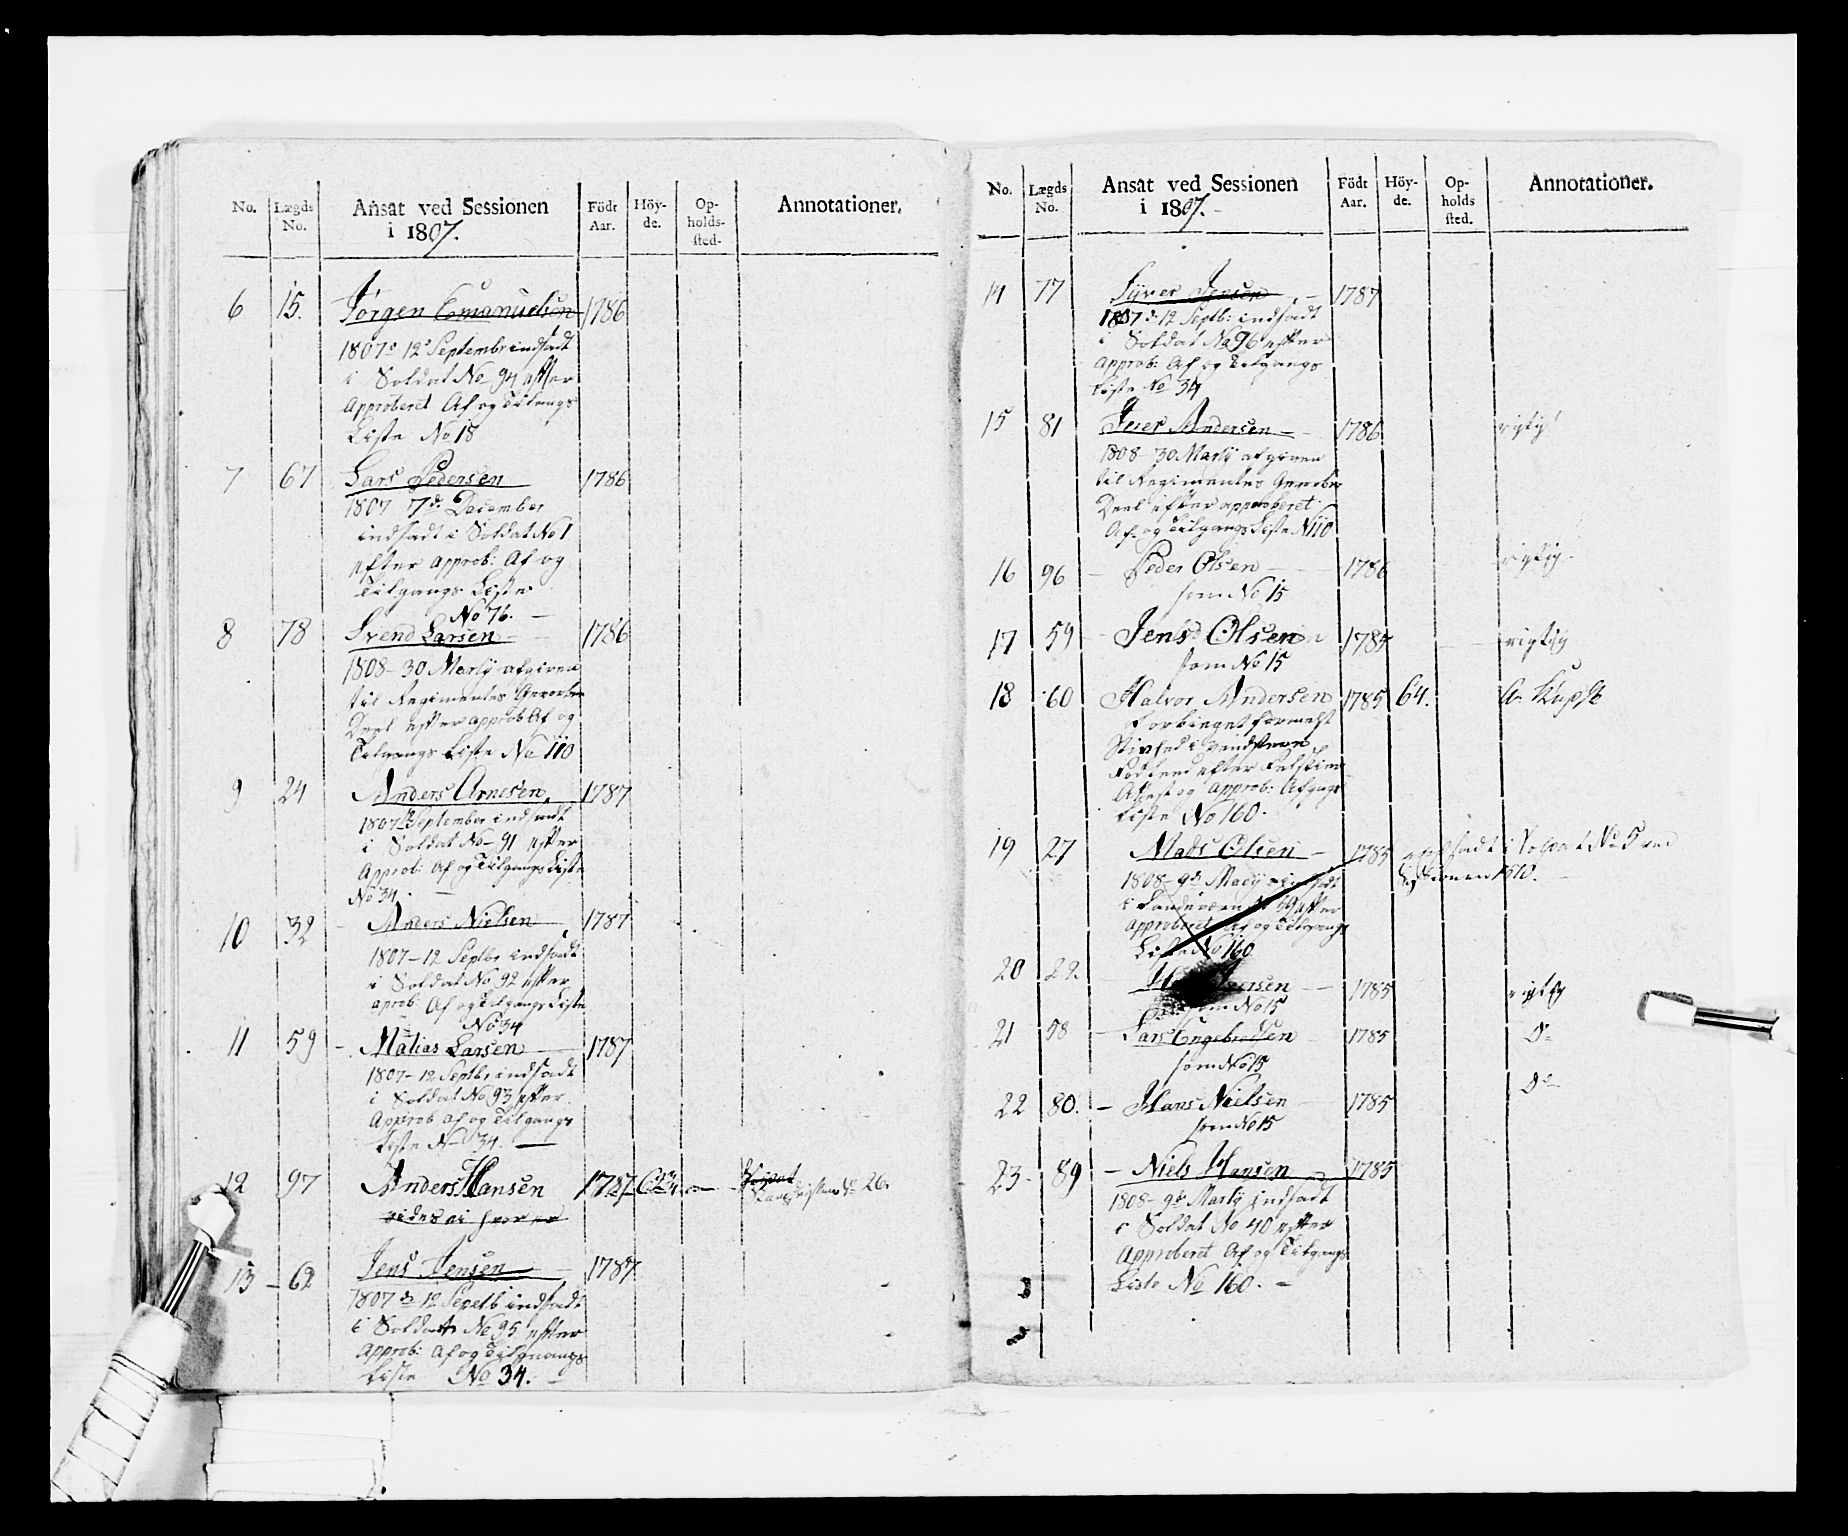 No. Lægds No. Ansat ved Sessionen i 1807. Födt Aar. Höy-de. Op-holds-sted. Annotationer.
6 15. Jörgen Emanuelsen 1786
1807 d 12 Septembr indsadt
i Soldat No 94 efter
Approberet Af og Tilgangs
Liste No 18
7 67 Lars Pedersen 1786
1807 7de December
indsadt i Soldat No 1
efter Approb: Af og
Tilgangs Liste
No 76.
8 78 Svend Larsen 1786
1808 30 Martÿ afgiven
til Regimentes Gevorben
Deel efter approb Af og
Tilgangs Liste No 110
9 24 Anders Arnesen 1787
1807 12 September indsadt
i Soldat No 91 efter
Approb: Af og Tilgangs Liste
No 34.
10 32 Anders Nielsen 1787
1807 - 12 Septbr indsadt
i Soldat No 92 efter
aprob: Af og Tilgangs Liste
No 34
11 59 Matias Larsen 1787
1807 - 12 Septbr indsadt
i Soldat No 93 efter
Approb af og Tilgangs
Liste No 34.
12 97 Anders Hansen 1787 No 26.
vides ei hvor er
13 62 Jens Jensen 1787
1807 d 12 Septb indsadt
i Soldat No 95 efter
Approb: Af og Tilgangs
Liste No 34.
No. Lægds No. Ansat ved Sessionen i 1807. Födt Aar. Höy-de. Op-holds sted. Annotationer.
14 77 Syver Jensen 1787
1807 d 12 Septb: indsadt
i Soldat No 96 efter
Approb: Af og Tilgangs
Liste No 34
15 81 Iver Andersen 1786 rigtig
1808 30 Martÿ afgiven
til Regimentes Gevorben
Deel efter approberet
Af og Tilgangs Liste N 110
16 96 Peder Olsen 1786 rigtig
som No 15
17 59 Jens Olsen 1785 rigtig
som No 15
18 60 Halvor Andersen 1785 64.
Forbigaaet formedelst
Stivhed i venstre
Approb: Afgangs
Liste No 160.
19 27 Mads Olsen 1785 indsadt i Soldat No 5 ved
Sessionen 1810.
1808 - 9de Martÿ indsadt
i Landeværn No 49 efter
Approberet Af og Tilgangs
Liste No 160
20 22 1785 rigtig
som No 15
21 58 Lars Engebretsen 1785 Do
som No 15
22 80. Hans Nielsen 1785 Do
som No 15
23 89 Niels Hansen 1785
1808 - 9de Martÿ indsadt
i Soldat No 40 efter
Approberet Af og Tilgangs
Liste No 160.